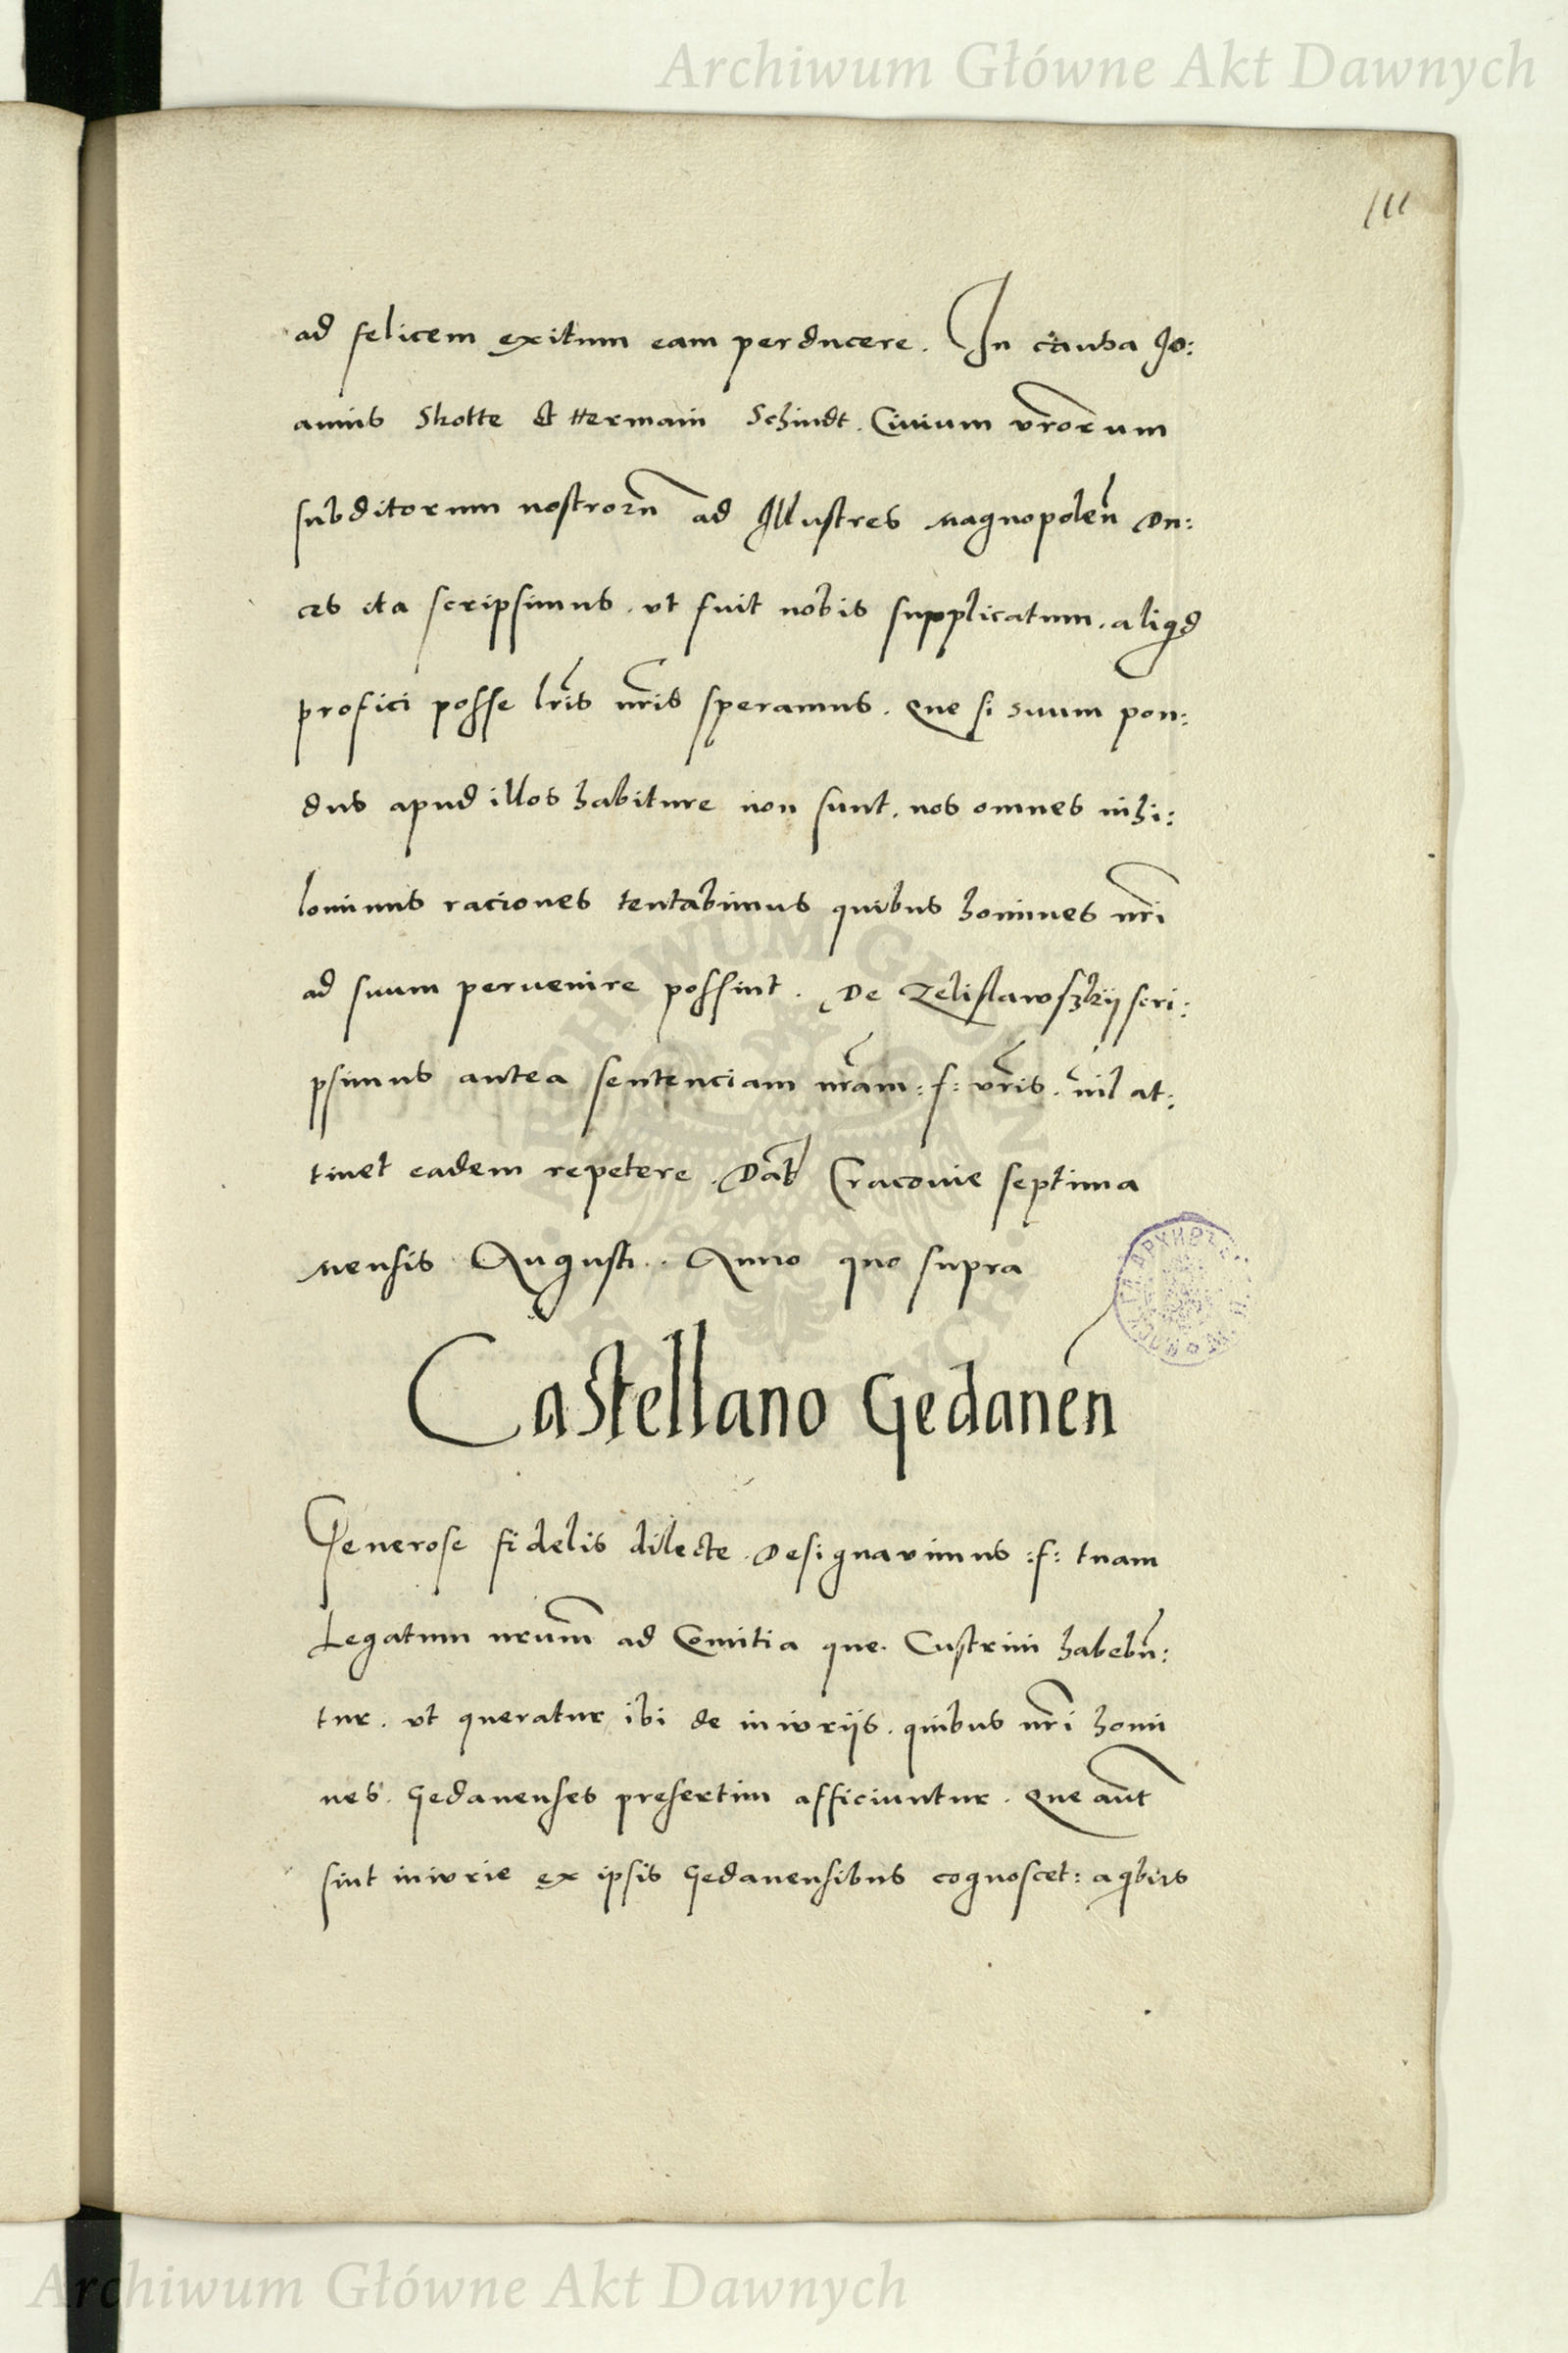 Archiwum Główne Akt Dawnych
111
ad felicem exitum eam perducere. In causa Jo:
annis Skotte et Hermain Schindt. Civium vrorum
subditorum nostrorū ad Illustres Magnopoleń Du:
ces ita scripsimus. vt fuit nobis supplicatum. aliqd
profici posse lris nris speramus. Que si suum pon:
dus apud illos habiture non sunt. nos omnes nihi:
lominus raciones tentabimus quibus homines nri
ad suum pervenire possint. De Zelislawszkÿ scri:
psimus antea sentenciam nram :f: vris. nil at:
tinet eadem repetere. Dat Cracovie septima
Mensis Augusti. Anno quo supra
Castellano Gedaneń
Generose fidelis dilecte. Designavimus :f: tuam
Legatum nrum ad Comitia que Custrini habebū:
tur. vt queratur ibi de iniuriis. quibus nri homi
nes. Gedanenses presertim afficiuntur. Que aut
sint iniurie ex ipsis Gedanensibus cognoscet: a qbus
Archiwum Główne Akt Dawnych